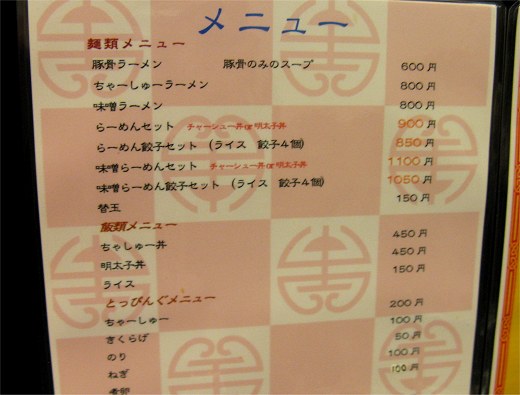 メニュー
麺類メニュー
豚骨ラーメン 豚骨のみのスープ 600円
ちゃーしゅーラーメン 800円
味噌ラーメン 800円
らーめんセット チャーシュー丼or明太子丼 900円
らーめん餃子セット (ライス 餃子4個) 850円
味噌らーめんセット チャーシュー丼or明太子丼 1100円
味噌らーめん餃子セット (ライス 餃子4個) 1050円
替玉 150円
飯類メニュー
ちゃしゅー丼 450円
明太子丼 450円
ライス 150円
とっぴんぐメニュー
ちゃーしゅー 200円
きくらげ 100円
のり 50円
ねぎ 100円
煮卵 100円